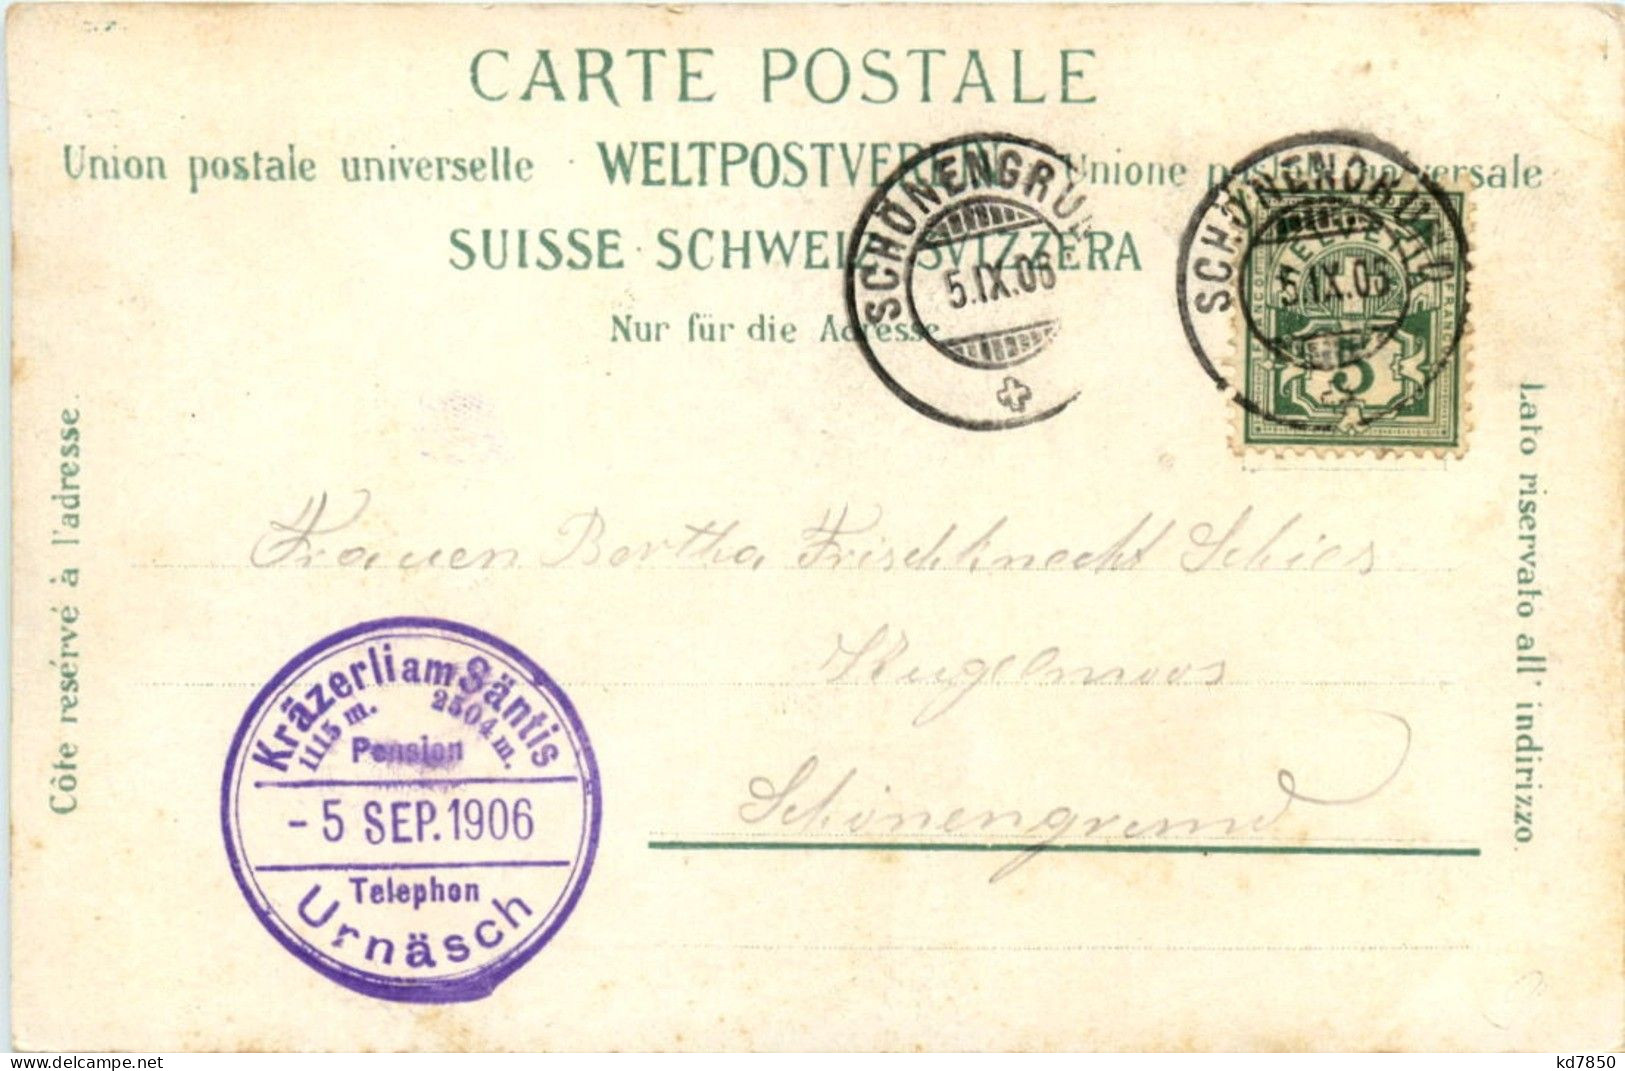 CARTE POSTALE
Union postale universelle · WELTPOSTVEREIN · Unione postale universale
SUISSE · SCHWEIZ · SVIZZERA
Nur für die Adresse
SCHÖNENGRUND
5.IX.06
SCHÖNENGRUND
5.IX.06
HELVETIA
FRANCO
5
Côte resérvé à l'adresse.
Lato riservato all' indirizzo.
Frauen Bertha Frischknecht Schies
Kugelmoos
Schönengrund
Kräzerli am Säntis
1115 m. 2504 m.
Pension
- 5 SEP. 1906
Telephon
Urnäsch
kd7850